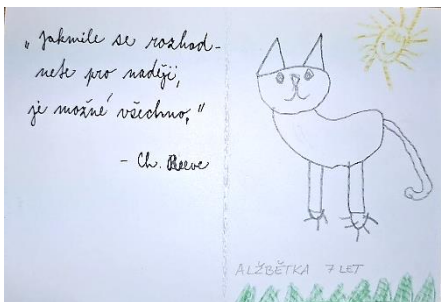 „Jakmile se rozhod-
nete pro naději,
je možné všechno."
- Ch. Reeve
ALŽBĚTKA 7 LET